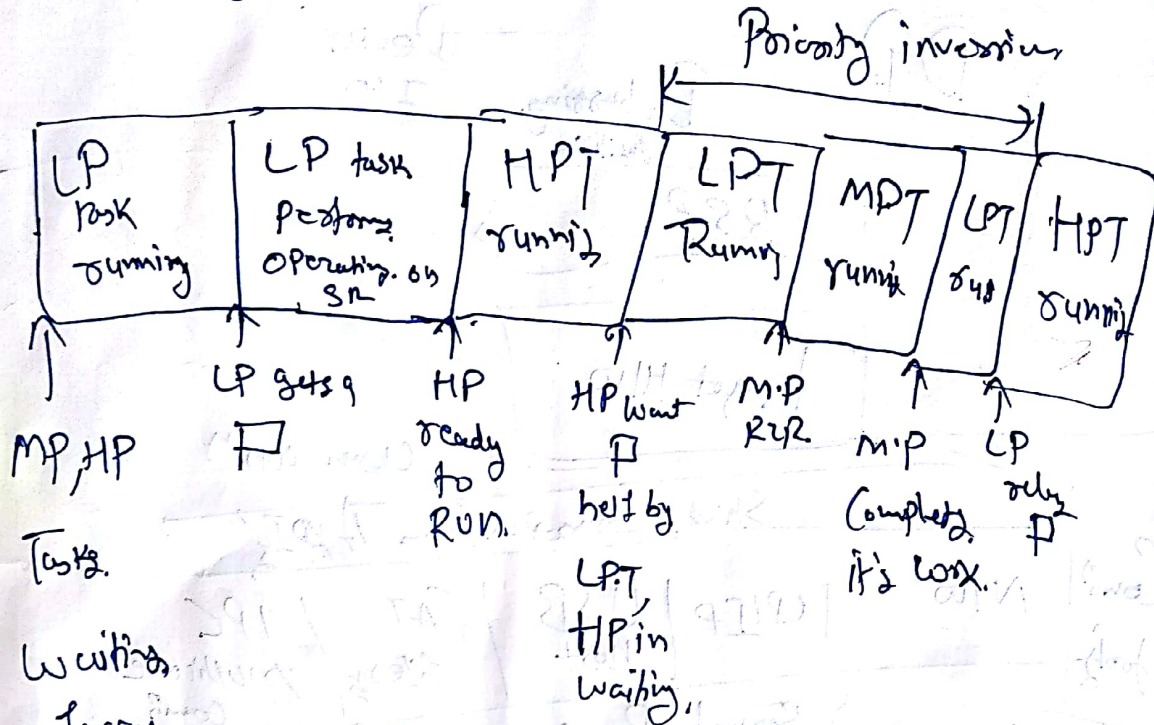 Priority inversion
LP
task
running
LP task
performs
operating. on
SR
HPT
running
LPT
Runing
MPT
running
LPT
run
HPT
running
MP, HP
Tasks.
Waiting
LP gets a
HP
ready
to
RUN.
HP want
held by
LPT,
HP in
waiting,
M.P
R2R.
M.P
Completes
it's work.
LP